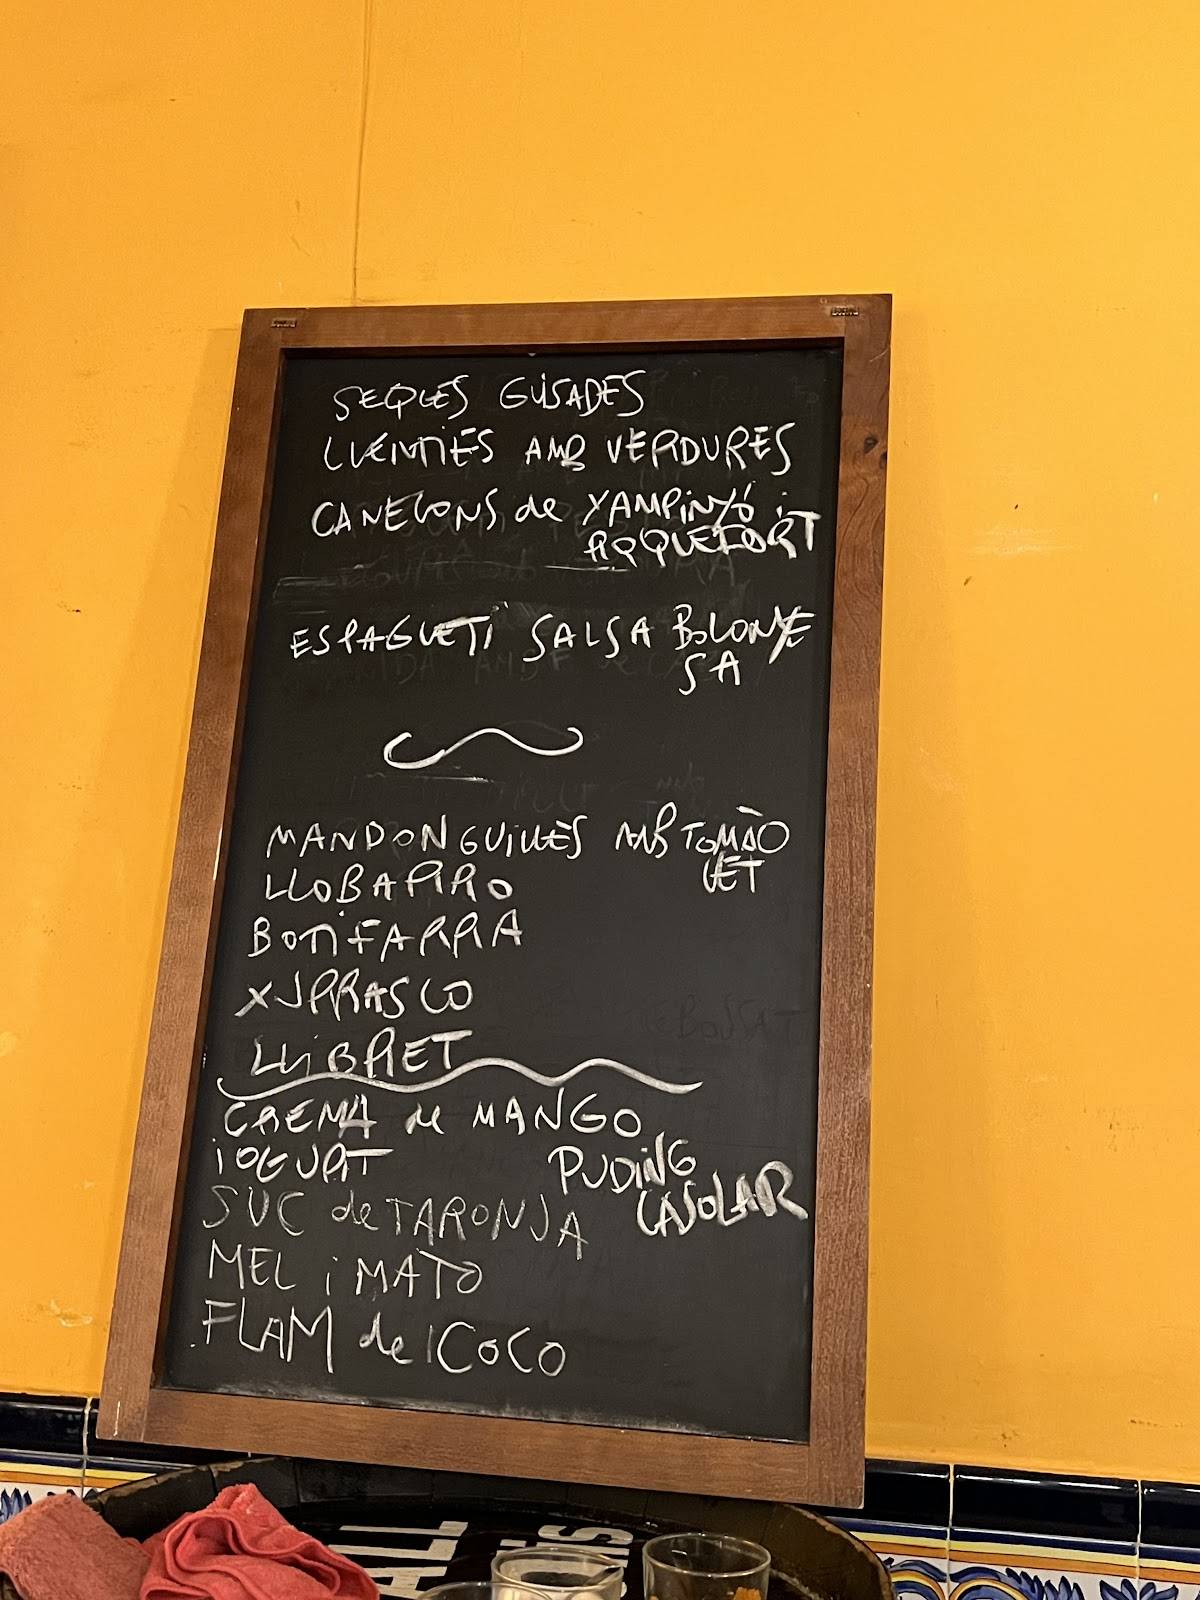 SEQUES GUISADES
LLENTIES AMB VERDURES
CANELONS de XAMPINYÓ i
ROQUEFORT
ESPAGUETI SALSA BOLONYE
SA
MANDONGUILLES AMB TOMÀQ
UET
LLOBARRO
BOTIFARRA
XURRASCO
LLIBRET
CREMA de MANGO
IOGURT
PUDING
CASOLAR
SUC de TARONJA
MEL i MATO
FLAM de COCO